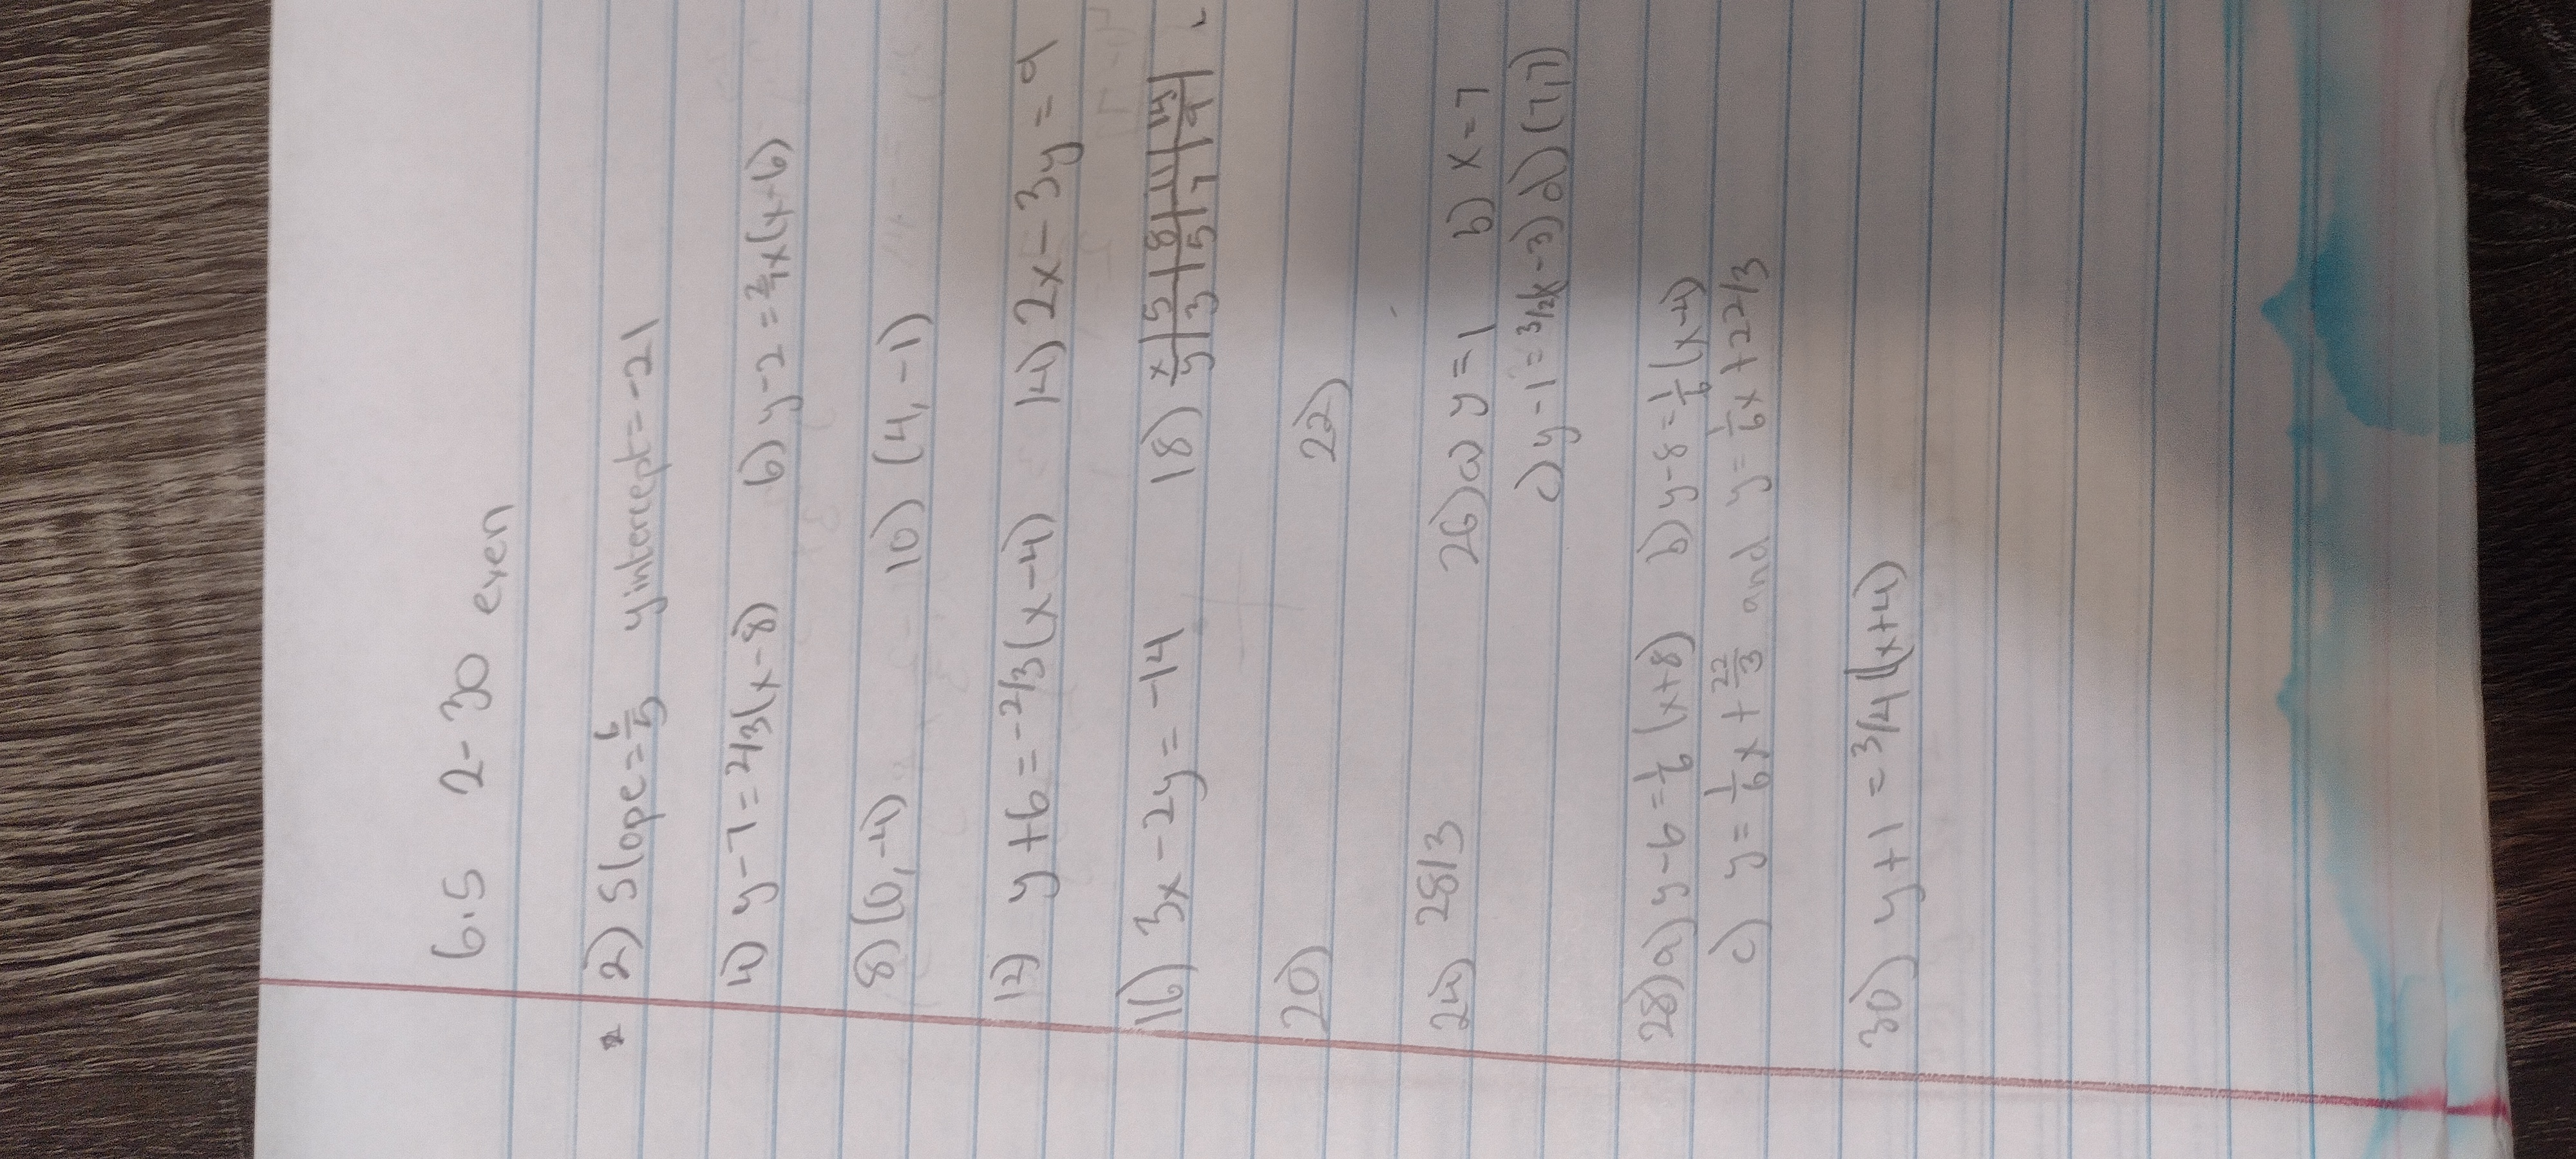 6.5 2-30 even
2) Slope = 6/5 y intercept = -21
4) y-7 = 2/3(x-8) 6) y-2 = 2/7x(x-6)
8) (0, -4) 10) (4, -1)
12) y+6 = -2/3(x-4) 14) 2x-3y = 9
16) 3x-2y = -14 18) x | 5 | 8 | 11 | 14 |
y | 3 | 5 | 7 | 9 |
20) 22)
24) 28/3 26) a) y = 1 b) x = 7
c) y-1 = 3/2(x-3) d) (7,7)
28) a) y-6 = 1/6 (x+8) b) y-8 = 1/6 (x-4)
c) y = 1/6x + 22/3 and y = 1/6x + 22/3
30) y+1 = 3/4 (x+4)